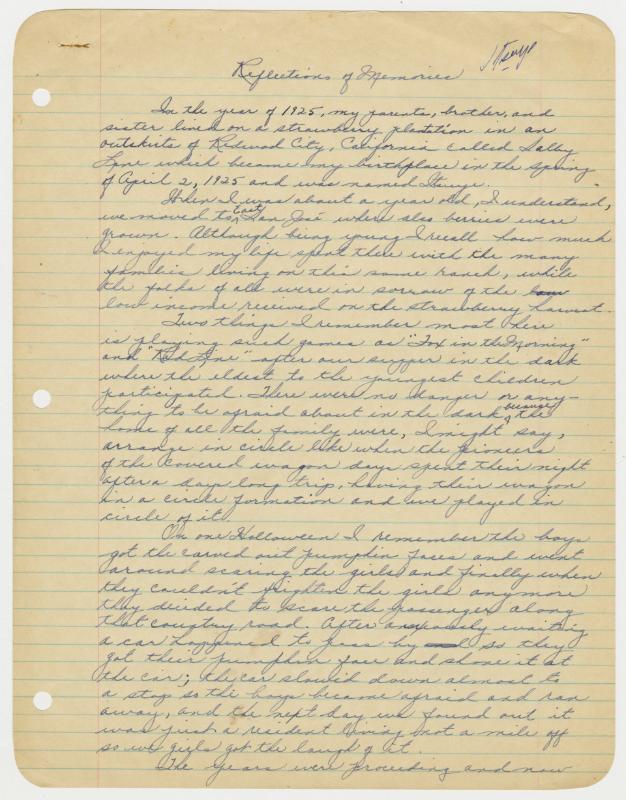 Reflections of Memories
In the year of 1925, my parents, brother, and
sister lived on a strawberry plantation in an
outskirts of Redwood City, California called Salby
Lane which became my birthplace in the spring
of April 2, 1925 and was named
When I was about a year old, I understand,
we moved to East San José where also berries were
grown. Although being young I recall how much
I enjoyed my life spent there with the many
families living on this same ranch, while
the folks of all were in sorrow of the
low income received on the strawberry harvest.
Two things I remember most here
is playing such games as "Fox in the Morning"
and "Red Line" after our supper in the dark
where the eldest to the youngest children
participated. There were no danger or any-
thing to be afraid about in the dark, because the
home of all the family were, I might say,
arrange in circle like when the pioneers
of the covered wagon days spent their night
after a days long trip, having their wagon
in a circle formation and we played in
circle of it.
On one Holloween I remember the boys
got the carved out pumpkin faces and went
around scaring the girls and finally when
they couldn't frighten the girls anymore
they decided to scare the passengers along
that country road. After anxiously waiting
a car happened to pass by so they
got their pumpkin face and shone it at
the car; the car slowed down almost to
a stop so the boys became afraid and ran
away, and the next day we found out it
was just a resident living not a mile off
so we girls got the laugh of it.
The years were proceeding and now